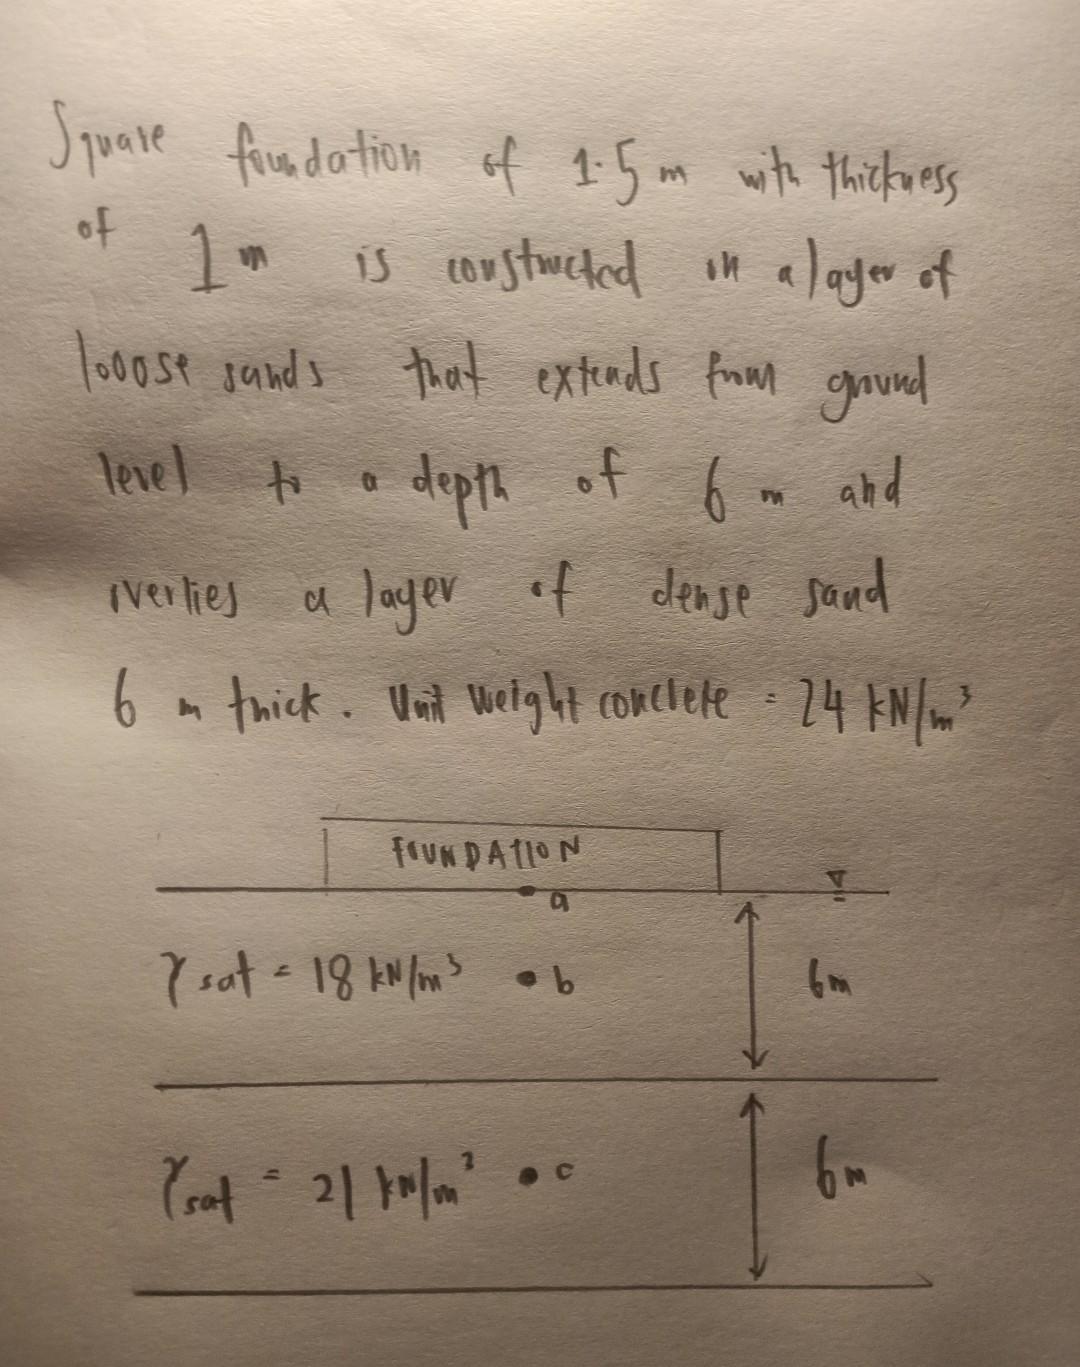 Square foundation of 1.5 m with thickness
of 1 m is constructed on a layer of
looose sands that extends from ground
level to a depth of 6 m and
overlies a layer of dense sand
6 m thick. Unit weight concrete = 24 kN/m³
FOUNDATION
a
γsat = 18 kN/m³ • b 6m
γsat = 21 kN/m³ • c 6m